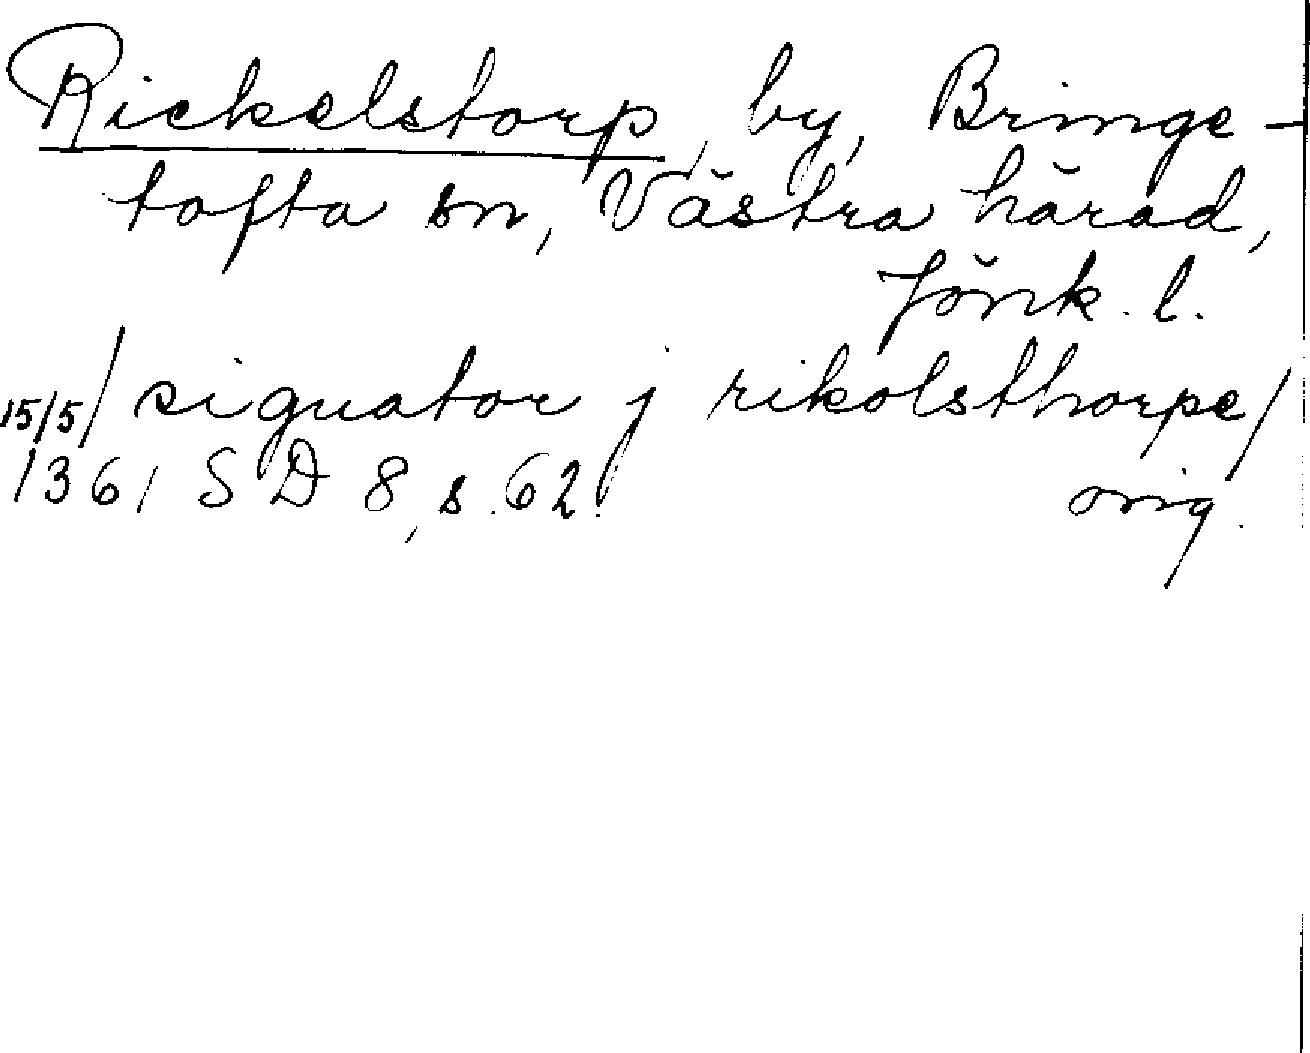 Rickelstorp, by, Bringe-
tofta sn, Västra härad,
Jönk. l.
15/5/ signator j rikolsthorpe/
1361 SD 8, s. 62. orig.